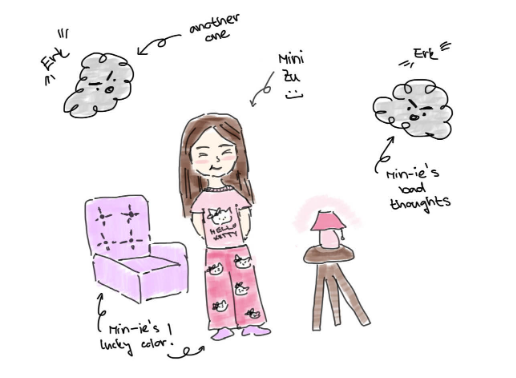 another
one
Erk
Mini
Zu
Erk
Min-ie's
bad
thoughts
HELLO
KITTY
Min-ie's
lucky color!